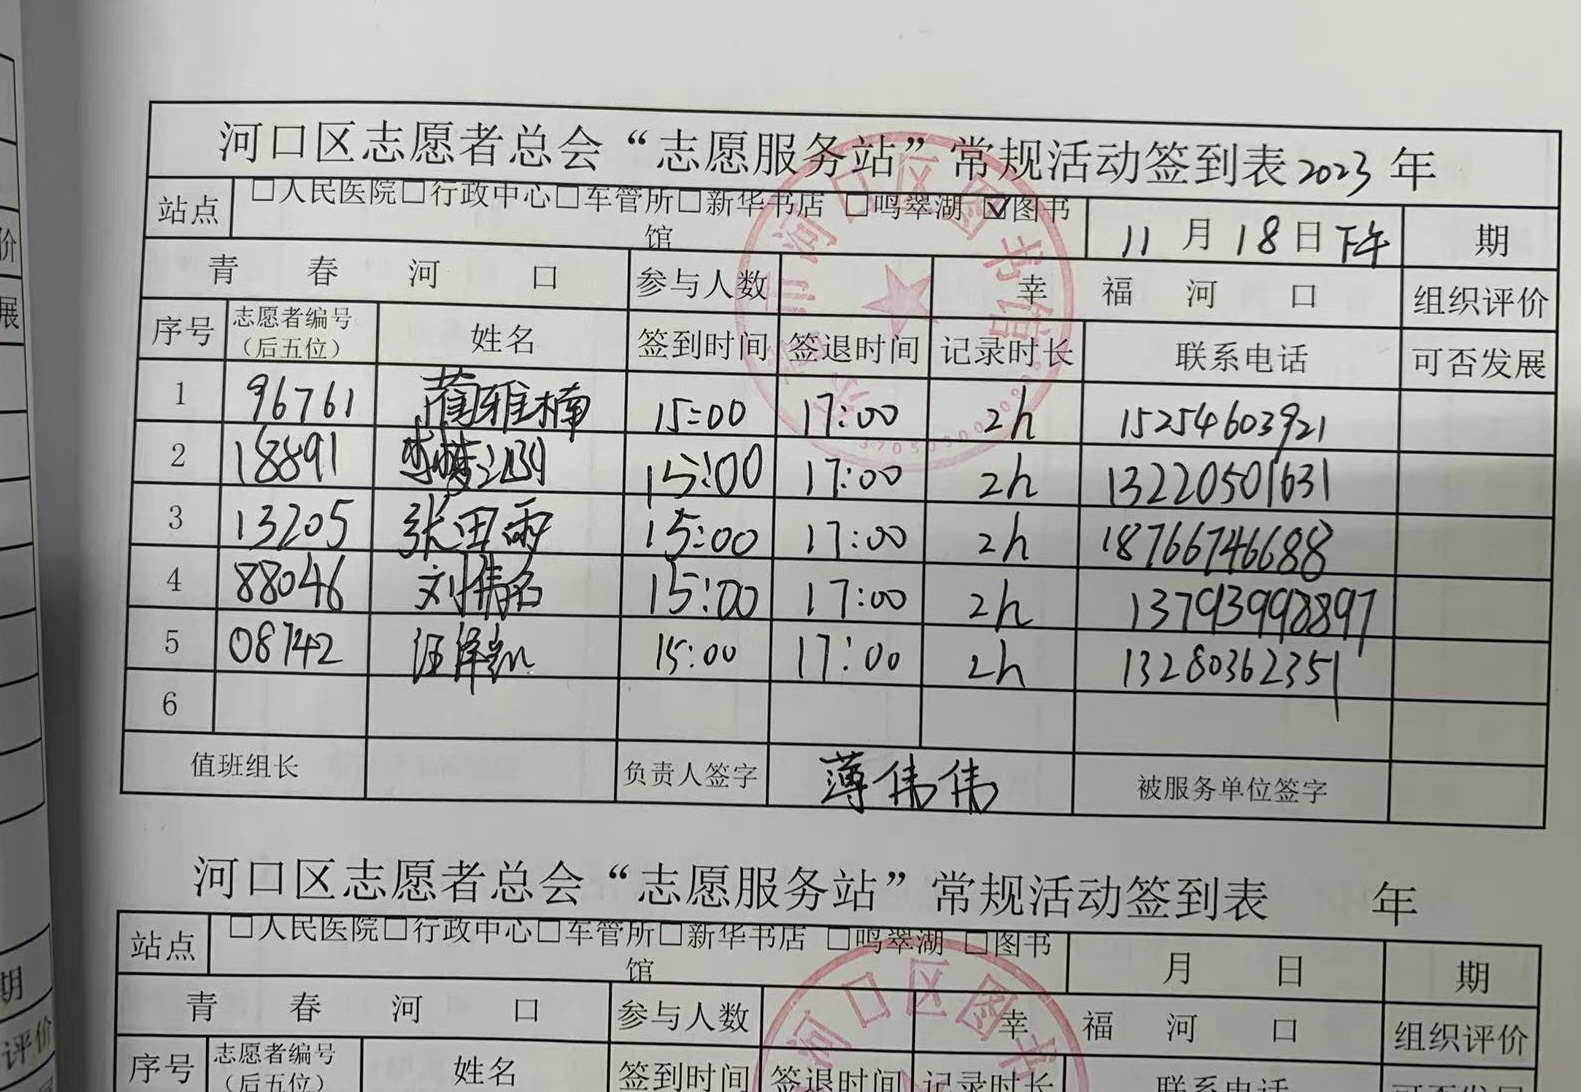 河口区志愿者总会“志愿服务站”常规活动签到表2023年
站点 □人民医院□行政中心□车管所□新华书店 □鸣翠湖 ☑图书馆 11月18日下午 期
青春河口 参与人数 幸福河口 组织评价
序号 志愿者编号（后五位） 姓名 签到时间 签退时间 记录时长 联系电话 可否发展
1 96761 蔺雅楠 15:00 17:00 2h 15254603921
2 18891 李 15:00 17:00 2h 13220501631
3 13205 张田雨 15:00 17:00 2h 18766746688
4 88046 刘伟名 15:00 17:00 2h 137939998897
5 08742 汪泽凯 15:00 17:00 2h 13280362351
6
值班组长 负责人签字 薄伟伟 被服务单位签字
河口区图书馆
河口区志愿者总会“志愿服务站”常规活动签到表 年
站点 □人民医院□行政中心□车管所□新华书店 □鸣翠湖 □图书馆 月 日 期
青春河口 参与人数 幸福河口 组织评价
序号 志愿者编号（后五位） 姓名 签到时间 签退时间 记录时长 联系电话 可否发展
河口区图书
价
展
期
评价